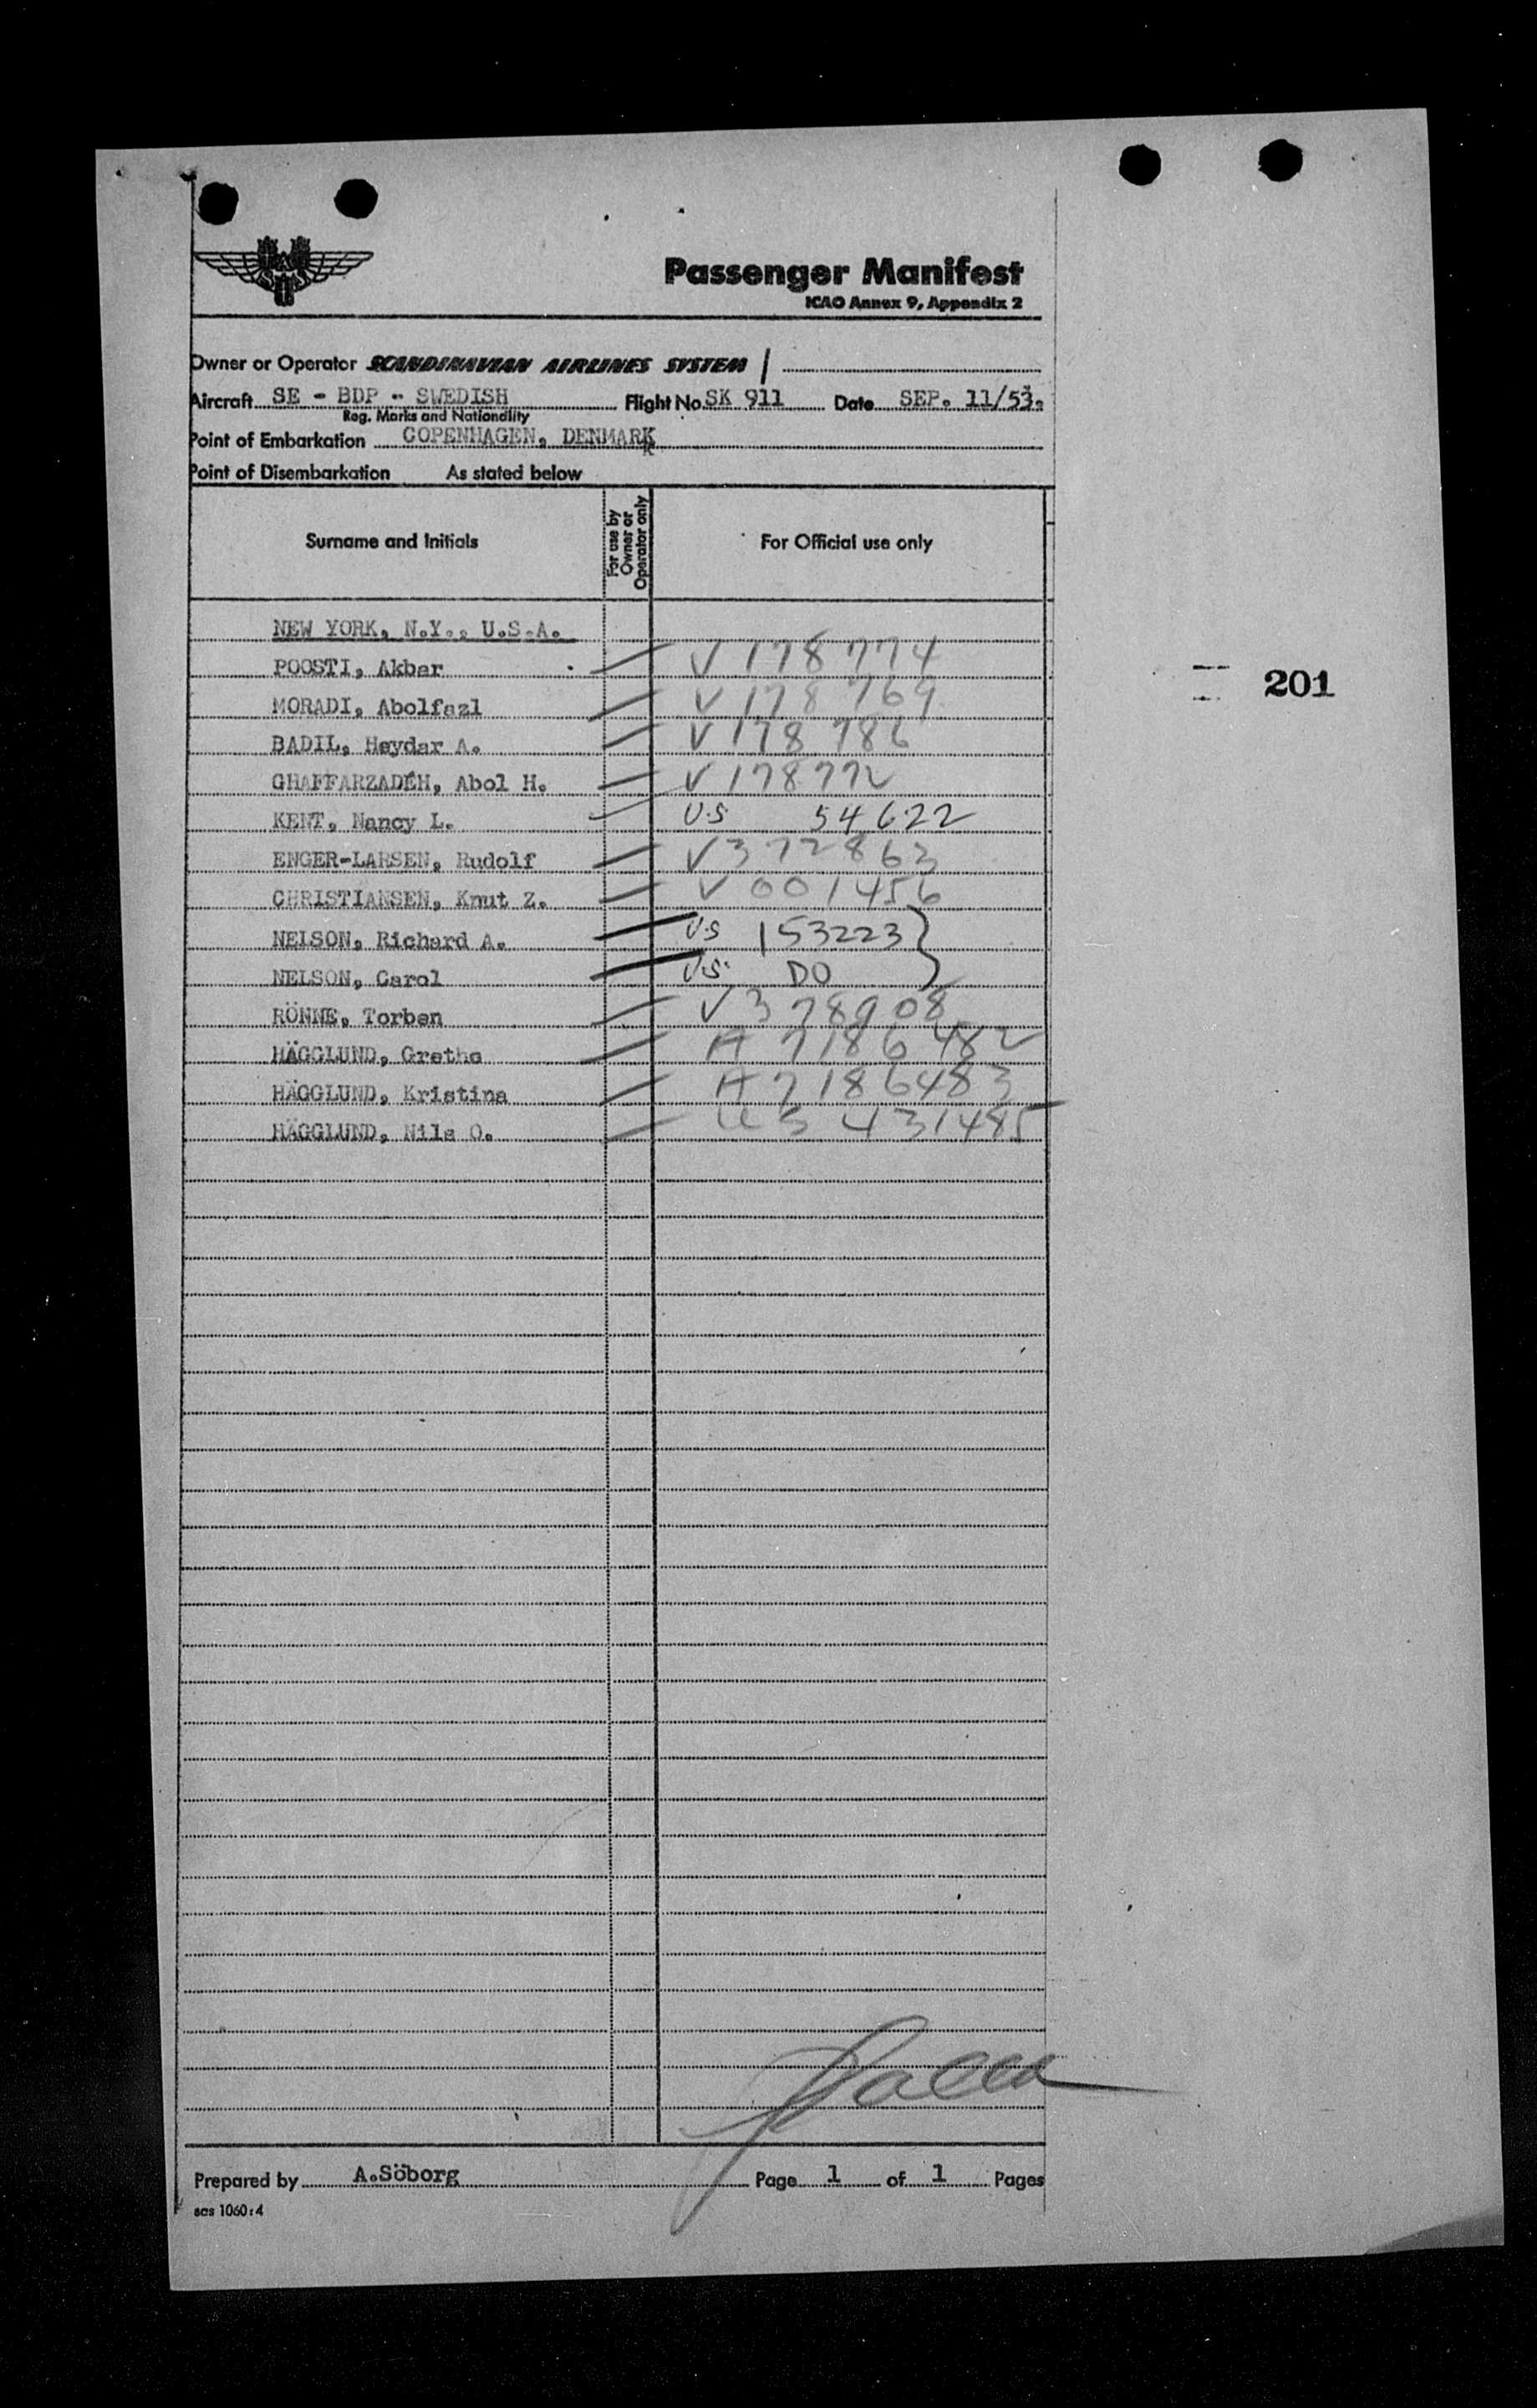 Passenger Manifest
ICAO Annex 9, Appendix 2
Owner or Operator SCANDINAVIAN AIRLINES SYSTEM
Aircraft SE - BDP - SWEDISH Flight No. SK 911 Date SEP. 11/53.
Reg. Marks and Nationality
Point of Embarkation COPENHAGEN, DENMARK
Point of Disembarkation As stated below
Surname and Initials For use by Owner or Operator only For Official use only
NEW YORK, N.Y., U.S.A.
POOSTI, Akbar V 178774
201
MORADI, Abolfazl V 178769
BADIL, Heydar A. V 178786
GHAFFARZADEH, Abol H. V 178772
KENT, Nancy L. U.S 54622
ENGER-LARSEN, Rudolf V 372863
CHRISTIANSEN, Knut Z. V 001456
NELSON, Richard A. U.S 153223
NELSON, Carol U.S. DO
RÖNNE, Torben V 378908
HÄGGLUND, Grethe A 7186482
HÄGGLUND, Kristina A 7186483
HÄGGLUND, Nils O. US 431485
Prepared by A.Söborg Page 1 of 1 Pages
sas 1060:4